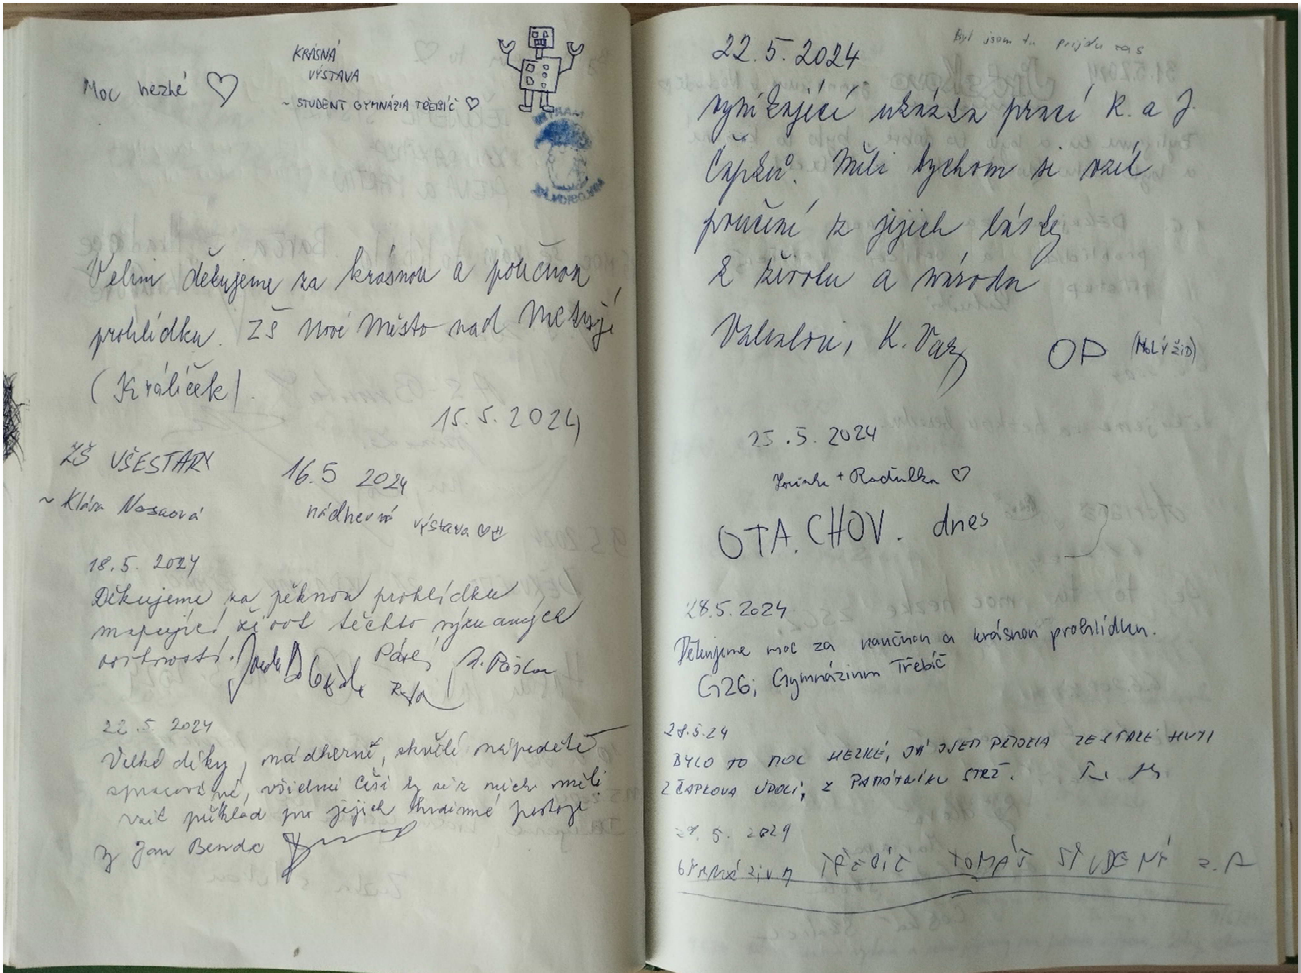 Moc hezké ♡
KRÁSNÁ
VÝSTAVA
~ STUDENT GYMNÁZIA TŘEBÍČ ♡
Velmi děkujeme za krásnou a poučnou
prohlídku. ZŠ Nové Město nad Metují
(Králíček).
15.5.2024
ZŠ VŠESTARY
~ Klára
16.5 2024
nádherná výstava
18.5.2024
Děkujeme za pěknou prohlídku
mapující život těchto výjimečných
osobností.
22.5 2024
Velké díky, nádherné, skvělé nápaditě
zpracování, všichni Češi by si z nich měli
vzít příklad pro jejich hrdinné postoje
Jan Benda
Byl jsem tu
22.5.2024
vynikající ukázka prací K. a J.
Čapků. Měli bychom si vzít
poučení z jejich lásky
k životu a národu
OP
25.5.2024
+ Radulka ♡
OTA.CHOV. dnes
28.5.2024
Děkujeme moc za naučnou a krásnou prohlídku.
G26, Gymnázium Třebíč
28.5.24
BYLO TO MOC HEZKÉ, JÁ JSEM ZE STARÉ HUTI
Z ČAPKOVA ÚDOLÍ, Z PAMÁTNÍKU STRŽ.
29.5.2024
TŘEBÍČ TOMÁŠ STUDENÝ 2.A